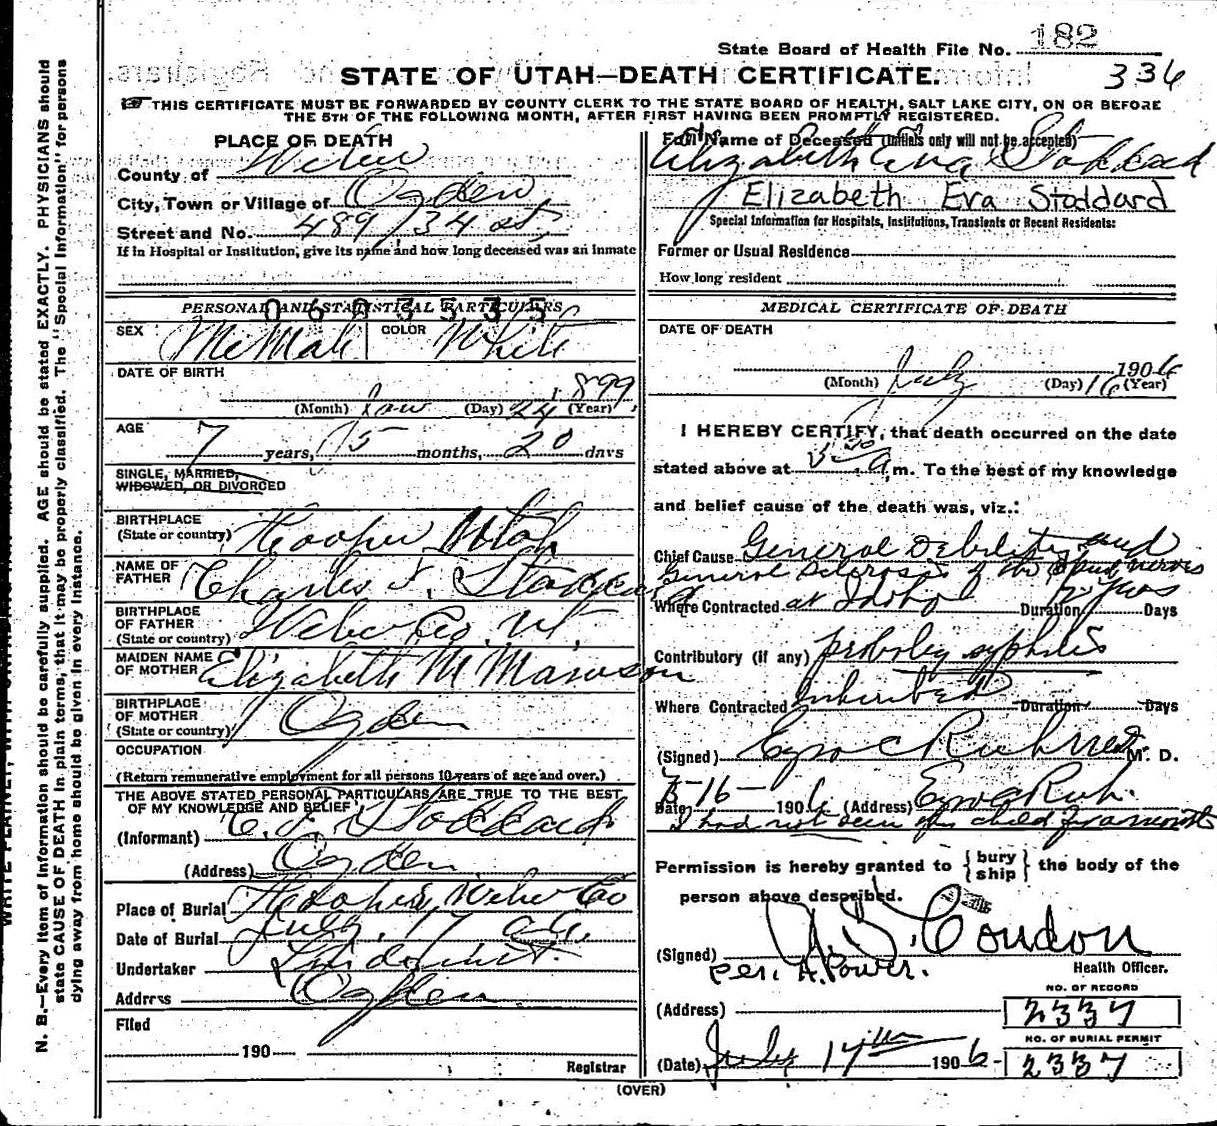 State Board of Health File No. 182
STATE OF UTAH—DEATH CERTIFICATE.
336
THIS CERTIFICATE MUST BE FORWARDED BY COUNTY CLERK TO THE STATE BOARD OF HEALTH, SALT LAKE CITY, ON OR BEFORE
THE 5TH OF THE FOLLOWING MONTH, AFTER FIRST HAVING BEEN PROMPTLY REGISTERED.
PLACE OF DEATH
County of Weber
City, Town or Village of Ogden
Street and No. 489 / 34 st
If in Hospital or Institution, give its name and how long deceased was an inmate
PERSONAL AND STATISTICAL PARTICULARS
0603535
SEX COLOR White
DATE OF BIRTH
1899
(Month) Jan (Day) 24 (Year)
AGE
7 years, 5 months, 20 days
SINGLE, MARRIED,
WIDOWED, OR DIVORCED
BIRTHPLACE
(State or country) Hooper Utah
NAME OF
FATHER Charles F. Stoddard
BIRTHPLACE
OF FATHER
(State or country) Weber Co. Ut.
MAIDEN NAME
OF MOTHER Elizabeth M
BIRTHPLACE
OF MOTHER
(State or country) Ogden
OCCUPATION
(Return remunerative employment for all persons 10 years of age and over.)
THE ABOVE STATED PERSONAL PARTICULARS ARE TRUE TO THE BEST
OF MY KNOWLEDGE AND BELIEF
(Informant) C. F. Stoddard
(Address) Ogden
Place of Burial Hooper, Weber Co
Date of Burial July 17
Undertaker Lindquist.
Address Ogden
Filed
190
Registrar
Full Name of Deceased (Initials only will not be accepted)
Elizabeth Eva Stoddard
Elizabeth Eva Stoddard
Special Information for Hospitals, Institutions, Transients or Recent Residents:
Former or Usual Residence
How long resident
MEDICAL CERTIFICATE OF DEATH
DATE OF DEATH
1906
(Month) July (Day) 16 (Year)
I HEREBY CERTIFY, that death occurred on the date
stated above at A m. To the best of my knowledge
and belief cause of the death was, viz.:
Chief Cause General Debility and
General Sclerosis of the nerves
Where Contracted at Idaho Duration yrs Days
Contributory (if any) probably syphilis
Where Contracted Inherited Duration Days
(Signed) Ezra C Rich M. D.
Date 7-16- 1906 (Address) Ezra C Rich.
I had not seen this child for months
Permission is hereby granted to { bury ship } the body of the
person above described.
(Signed) Condon
per. A. Power. Health Officer.
(Address)
NO. OF RECORD
2337
NO. OF BURIAL PERMIT
(Date) July 17th 1906 2337
(OVER)
N. B.—Every item of information should be carefully supplied. AGE should be stated EXACTLY. PHYSICIANS should
state CAUSE OF DEATH in plain terms, that it may be properly classified. The "Special Information" for persons
dying away from home should be given in every instance.